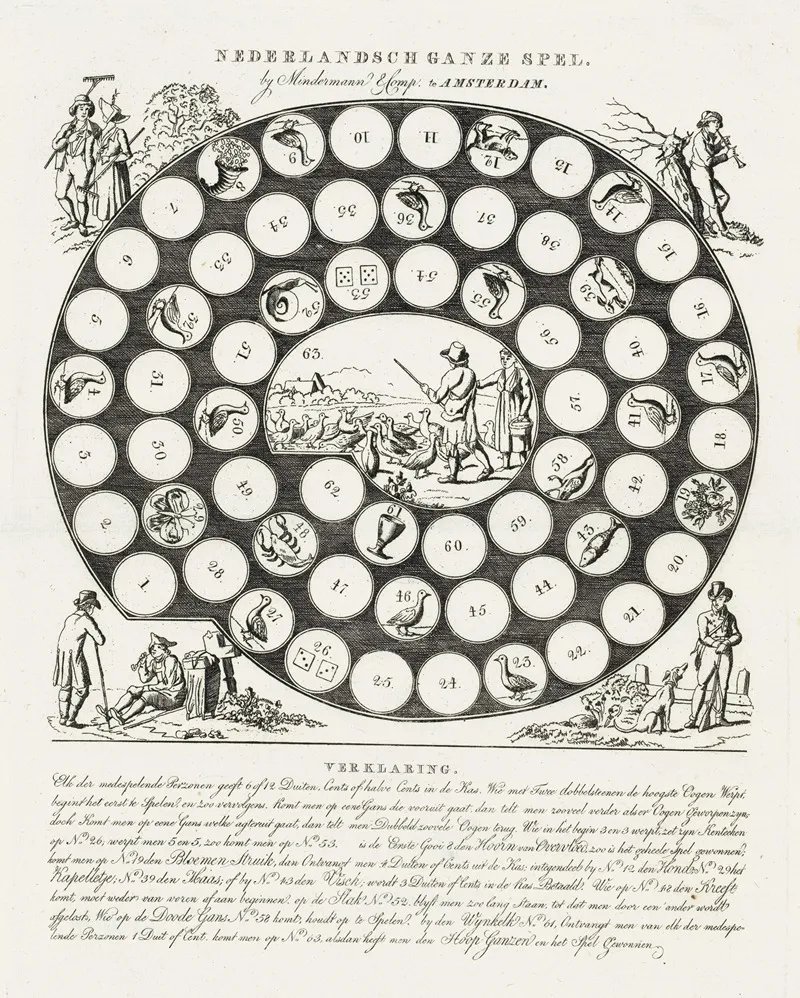 NEDERLANDSCH GANZE SPEL.
by Mindermann & Comp. te AMSTERDAM.
1.
2.
3.
4.
5.
6.
7.
8
9.
10.
11.
12.
13.
14.
15.
16.
17.
18.
19
20.
21.
22.
23.
24.
25.
26.
27.
28.
29
30.
31.
32.
33.
34.
35.
36.
37.
38.
39
40.
41.
42.
43.
44.
45.
46.
47.
48.
49.
50.
51.
52.
53
54.
55.
56.
57.
58.
59.
60.
61
62.
63.
VERKLARING.
Elk der medespelende Perzonen geeft 6 of 12 Duiten, Cents of halve Cents in de Kas. Wie met Twee dobbelsteenen de hoogste Oogen Werpt,
begint het eerst te Spelen, en zoo vervolgens. Komt men op eene Gans die vooruit gaat, dan telt men zooveel verder als er Oogen Geworpen zyn;
doch Komt men op eene Gans welke agteruit gaat, dan telt men Dubbeld zoovele Oogen terug. Wie in het begin 3 en 3 werpt, zet zyn Kenteeken
op No. 26, werpt men 5 en 5, zoo komt men op No. 53. is de Eerste Gooi 8 den Hoorn van Overvloed, zoo is het geheele Spel gewonnen;
komt men op No. 19 den Bloemen Struik, dan Ontvangt men 4 Duiten of Cents uit de Kas; intgendeel by No. 12 den Hond, No. 29 het
Kapelletje, No. 39 den Haas, of by No. 43 den Visch, wordt 3 Duiten of Cents in de Kas Betaald. Wie op No. 48 den Kreeft
komt, moet weder van voren af aan beginnen. op de Slak No. 52. blyft men zoo lang Staan, tot dat men door een ander wordt
afgelost, Wie op de Doode Gans. No. 58 komt, houdt op te Spelen. by den Wynkelk No. 61, Ontvangt men van elk der medespe-
lende Perzonen 1 Duit of Cent. komt men op No. 63, alsdan heeft men den Hoop Ganzen en het Spel Gewonnen